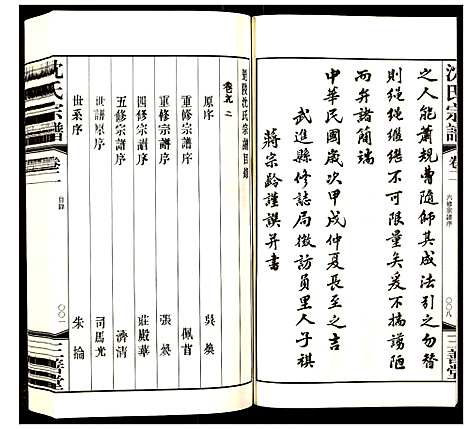 沈氏宗譜
卷二
六修宗譜序
〇〇八
三善堂
之人能蕭規曹隨師其成法引之勿替
則繩繩繼繼不可限量矣爰不揣謭陋
而弁諸簡端
中華民國歲次甲戌仲夏長至之吉
武進縣修誌局徵訪員里人子祺
蔣宗齡謹譔并書
毘陵沈氏宗譜目錄
卷之二
原序 吳奐
重修宗譜序 佩昔
重修宗譜序 張
四修宗譜序 莊殿華
五修宗譜序 濟清
世譜原序 司馬光
世系序 朱
沈氏宗譜
卷二
目錄
〇〇一
三善堂